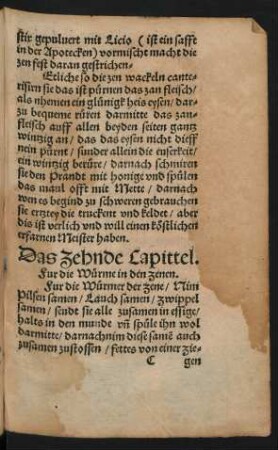 stir gepuluert mit Licio (ist ein safft
in der Apotecken) vormischt macht die
zen fest daran gestrichen.
Etliche so die zen wackeln caute-
risiern sie das ist pürnen das zan fleisch/
als nhemen ein glünigk heis eysen/ dar-
zu bequeme rüren darmitte das zan-
fleisch auff allen beyden seiten gantz
winzig an/ das das eysen nicht dieff
nein pürnt/ sunder allein die euserkeit/
ein wintzig berüre/ darnach schmiren
sie den Prandt mit honigk vnd spülen
das maul offt mit Mette/ darnach
wen es begind zu schweren gebrauchen
sie ertzey die truckent vnd keldet/ aber
dis ist verlich vnd will einen köstlichen
erfarnen Meister haben.
Das Zehnde Capittel.
Fur die Würme in den zenen.
Fur die Würmer der zene/ Nim
Pilsen samen/ Lauch samen/ zwippel
samen/ seudt sie alle zusamen in essige/
halts in den munde vñ spüle ihn wol
darmitte/ darnach nim diese samẽ auch
zusamen zustossen/ fettes von einer zie-
C gen